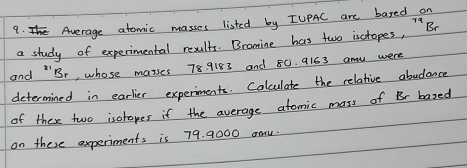 9. The Average atomic masses listed by IUPAC are based on
a study of experimental results. Bromine has two isotopes, ⁷⁹Br
and ⁸¹Br, whose masses 78.9183 and 80.9163 amu were
determined in earlier experiments. Calculate the relative abudance
of these two isotopes if the average atomic mass of Br based
on these experiments is 79.9000 amu.